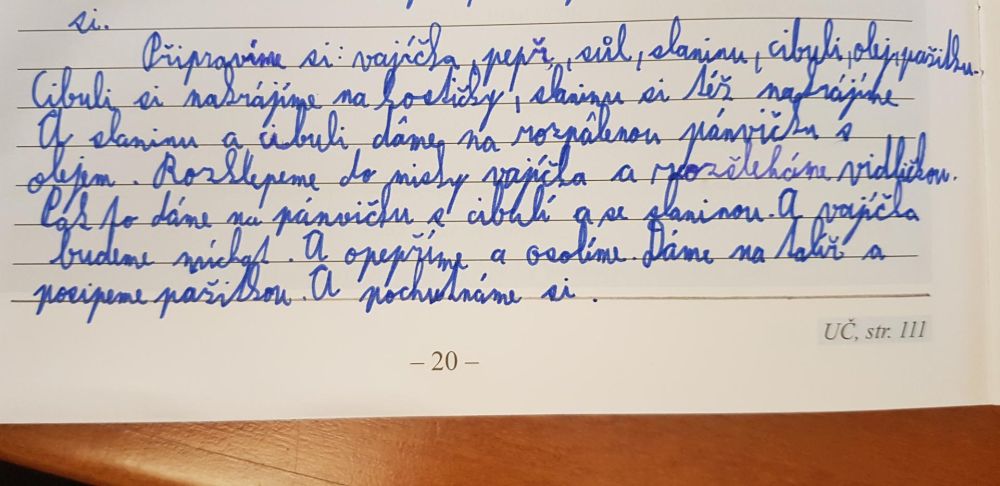 si.
Připravíme si: vajíčka, pepř, sůl, slaninu, cibuli, olej, pažitku.
Cibuli si nakrájíme na kostičky, slaninu si též nakrájíme
A slaninu a cibuli dáme na rozpálenou pánvičku s
olejem. Rozklepeme do misky vajíčka a rozšleháme vidličkou.
Pak to dáme na pánvičku s cibulí a se slaninou. A vajíčka
budeme míchat. A opepříme a osolíme. Dáme na talíř a
posipeme pažitkou. A pochutnáme si.
UČ, str. 111
– 20 –